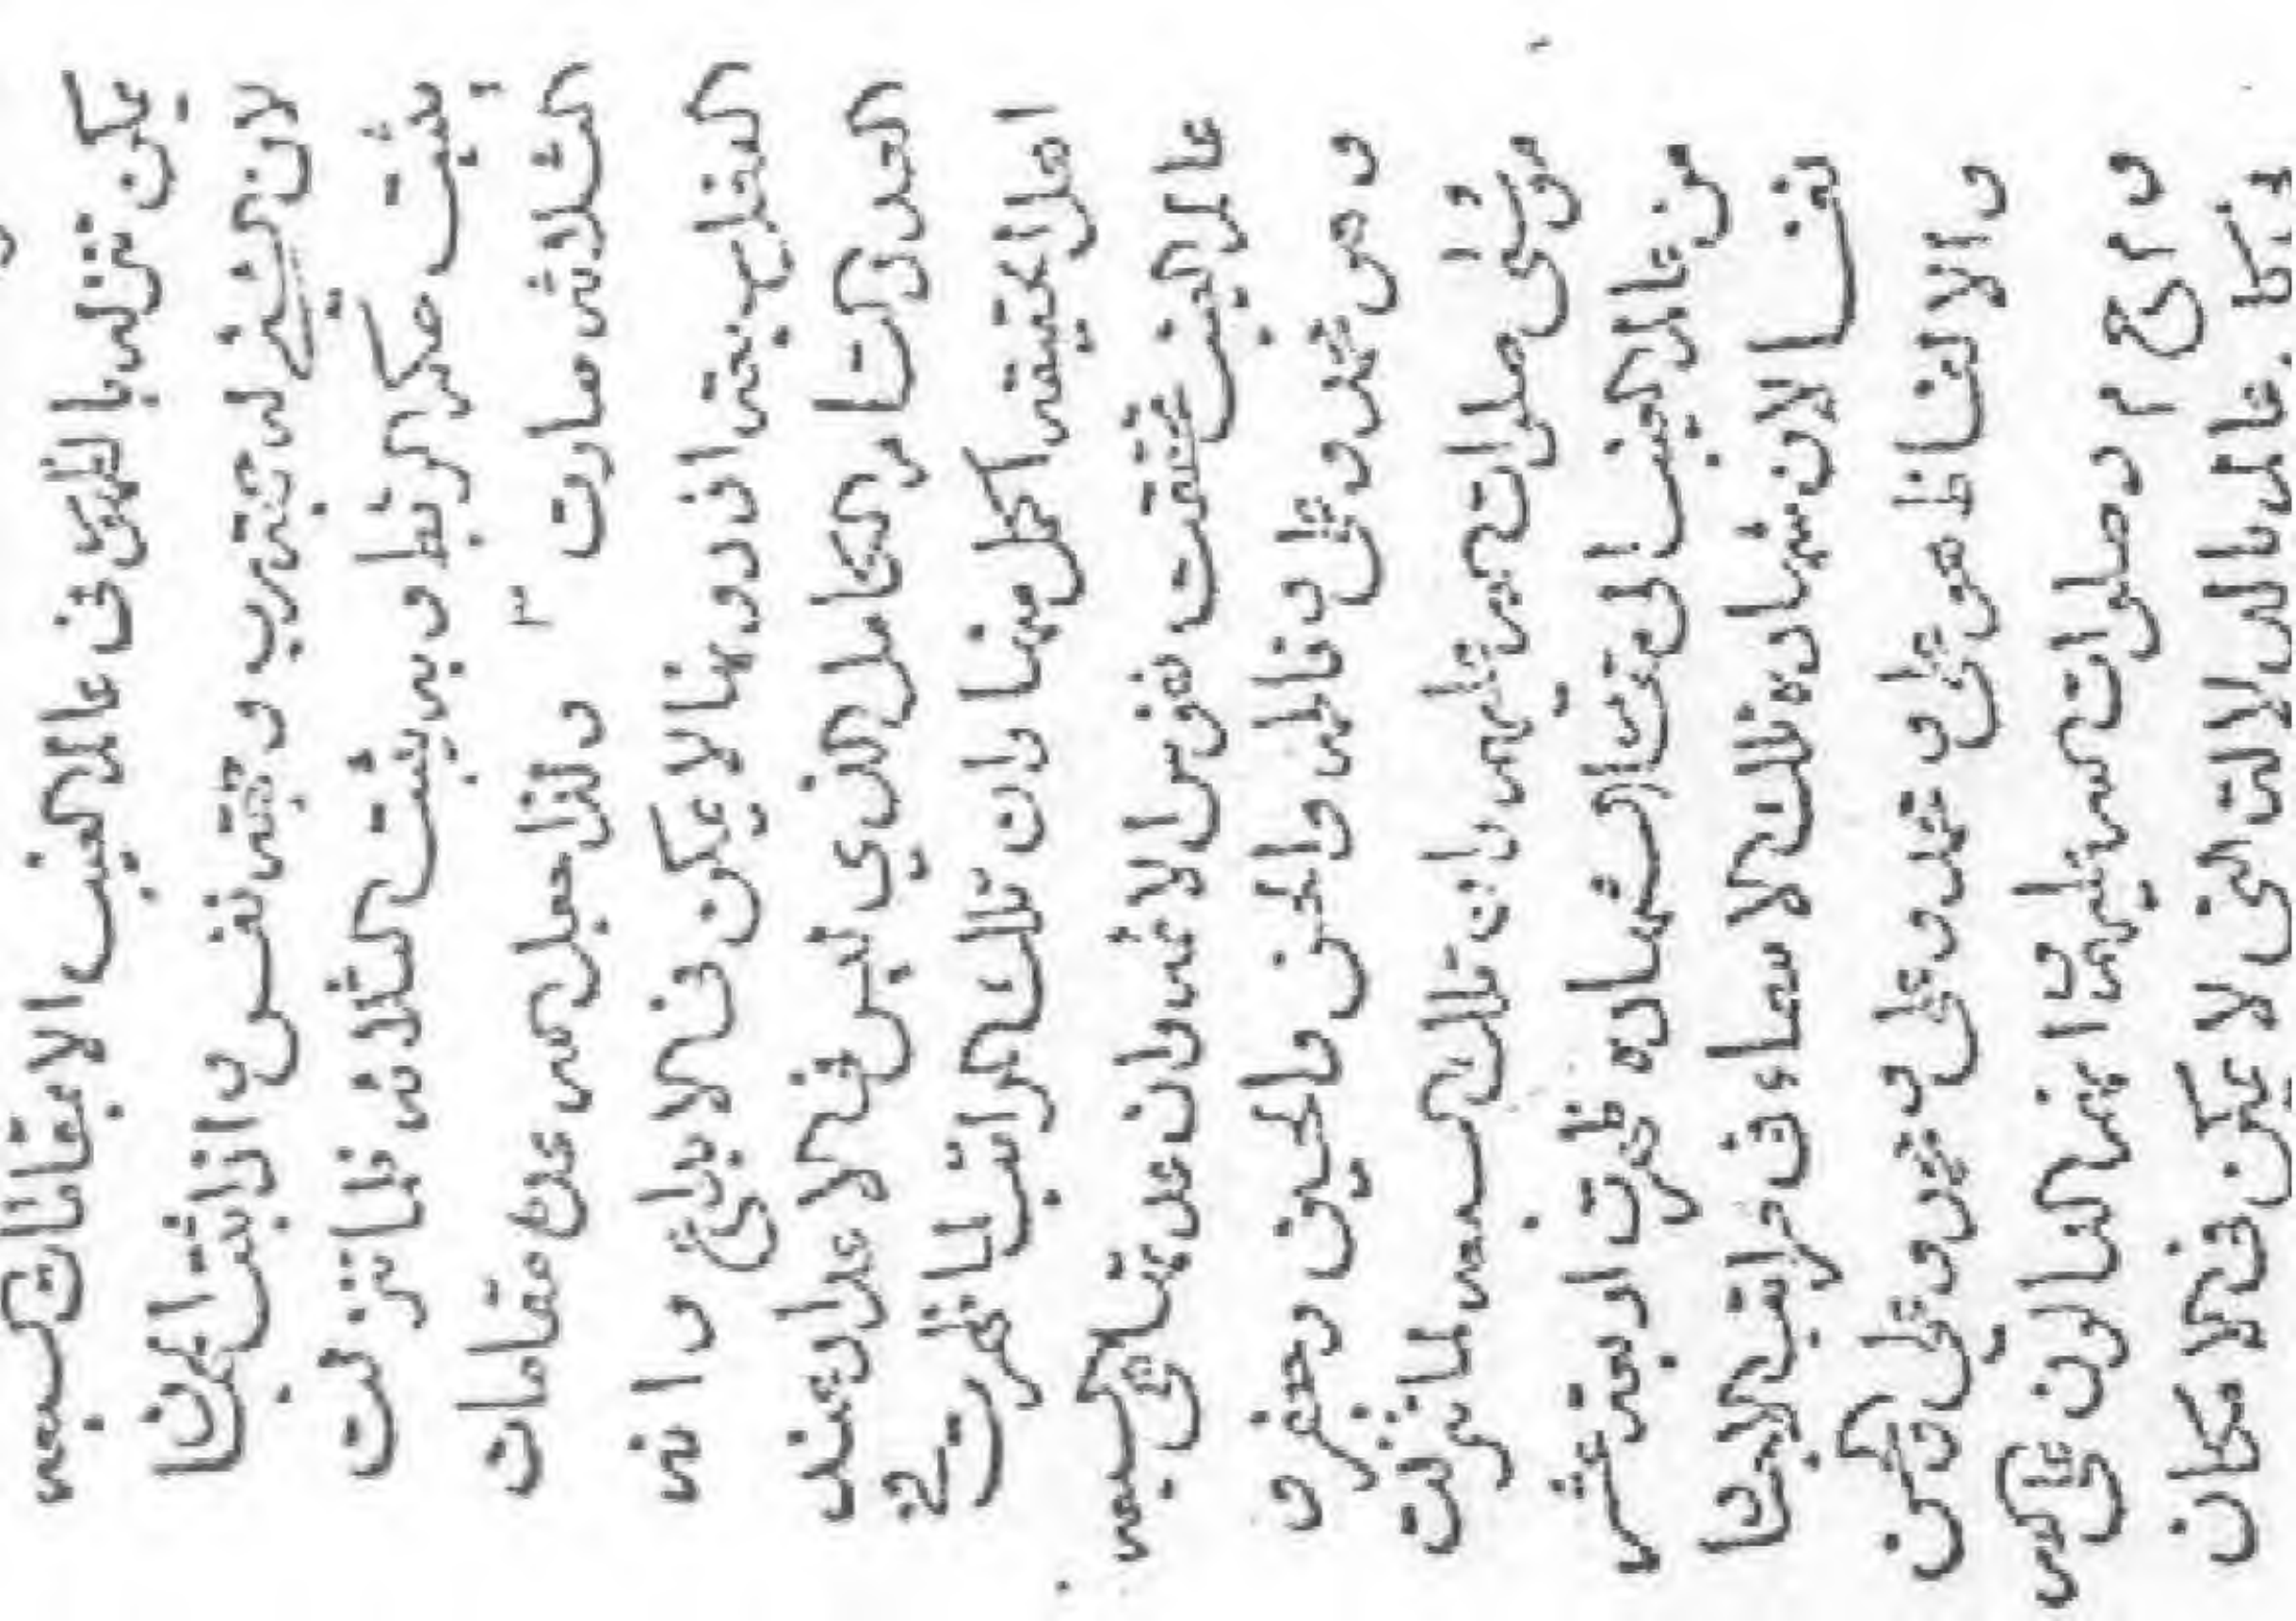 يمكن تنزله بالظهور في عالم الغيب الا بمقامات السبعه
لان الشئ له تجرب و قبته نفس و اذا ثبتا لهن
يثبت حكم الربط و به يثبت الثلاث فلما تنزلت
الثلاث صارت ٣ ولذا جعل الله عدة مقامات
الفعل سبعة اذ دونها لا يمكن في الابداع و انه
العدد التام الكامل الذي ليس في الاعداد عند
اهل الحقيقه اكمل منها وان تلك المراتب لما ظهرت في
عالم الغيب تحققت نفوس الائمه وان عدتها هي السبعه
و هي محمد وعلي وفاطمه والحسن والحسين وجعفر و
موسى صلوات الله عليهم وان تلك السبعه لما نزلت
من عالم الغيب الى رتبة الشهاده ظهرت اربعة عشر
نفسا لان شهادة تلك الاسماء في مراتب الابداع
والالفاظ هو علي و محمد و علي و محمد و علي و حسن
و م ح م د صلوات الله عليهم و انهم البالغون على الله
فكما عالم بالدلالة التي لا يمكن في الامكان